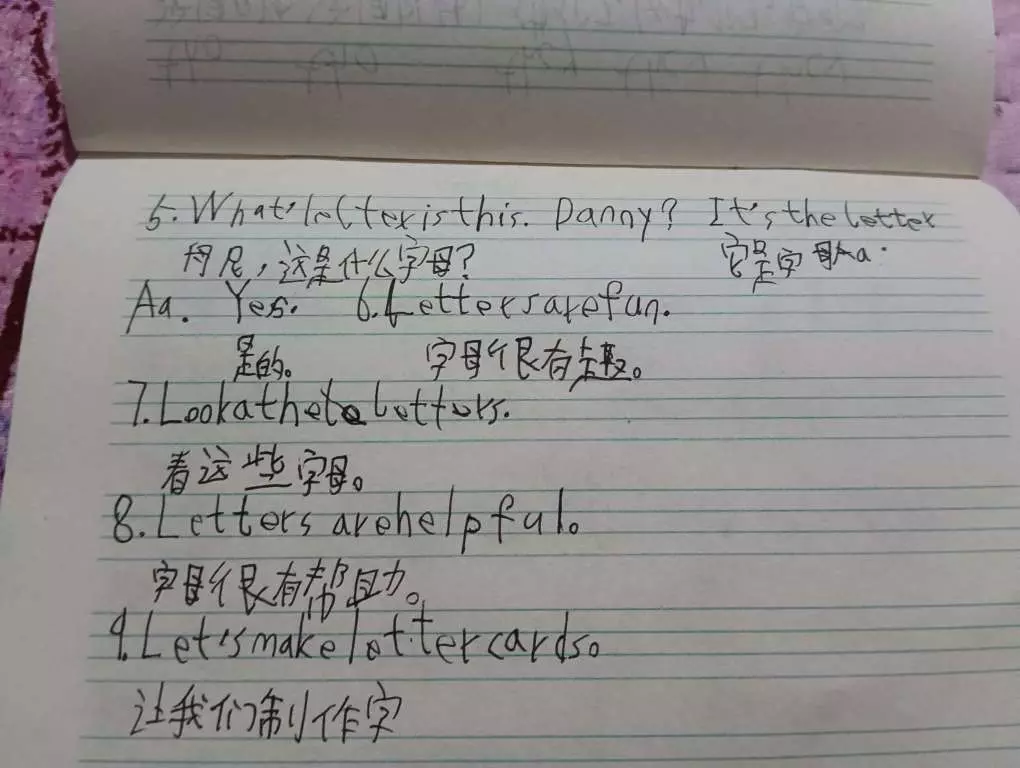 5. What'letter is this. Danny? It's the letter
丹尼，这是什么字母? 它是字母Aa.
Aa. Yes. 6. Letters are fun.
是的。 字母很有趣。
7. Look athe letters.
看这些字母。
8. Letters are helpful。
字母很有帮助。
9. Let's make letter cards。
让我们制作字